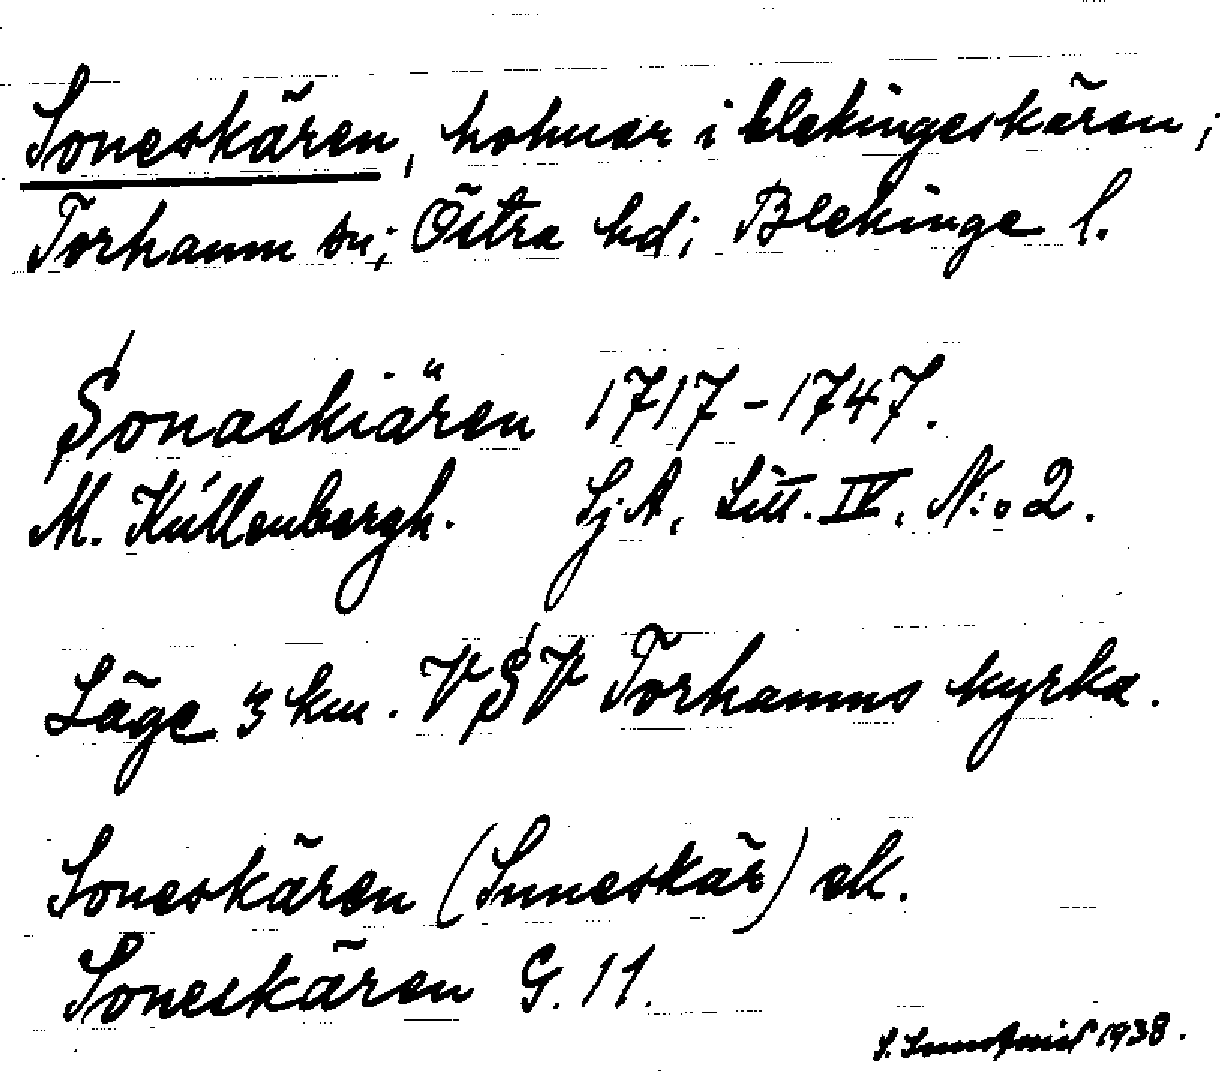 Soneskären, holmar i blekingeskären;
Torhamn sn; Östra hd; Blekinge l.
Sonaskiären 1717-1747.
M. Kúllenbergh. Lj.A, Litt. IV, N:o 2.
Läge 3 km. VSV Torhamns kyrka.
Soneskären (Suneskär) ek.
Soneskären G. 11.
1938.